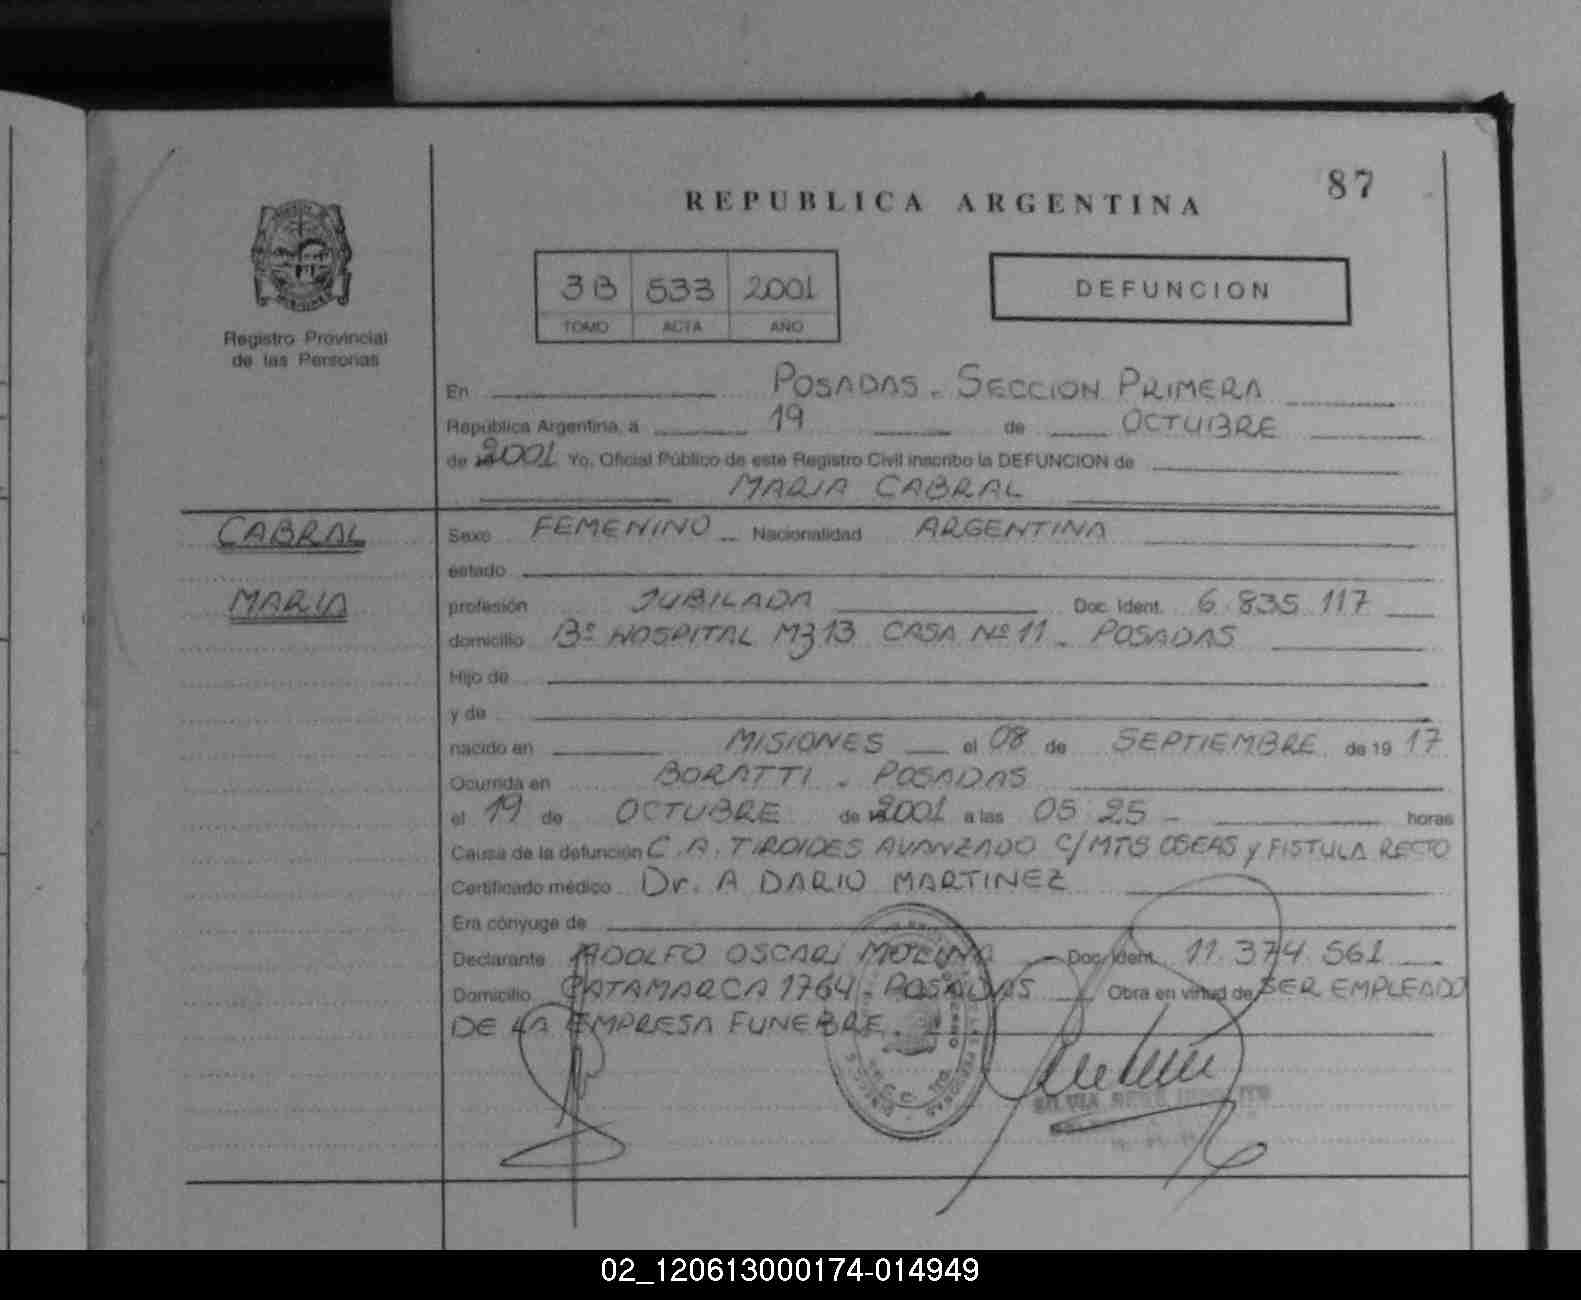 87
REPUBLICA ARGENTINA
3B 533 2001
TOMO ACTA AÑO
DEFUNCION
Registro Provincial
de las Personas
En POSADAS - SECCION PRIMERA
República Argentina, a 19 de OCTUBRE
de 2001 Yo, Oficial Público de este Registro Civil inscribo la DEFUNCION de
MARIA CABRAL
CABRAL
MARIA
Sexo FEMENINO Nacionalidad ARGENTINA
estado
profesión JUBILADA Doc. Ident. 6.835.117
domicilio Bº HOSPITAL Mz 13 CASA Nº 11 - POSADAS
Hijo de
y de
nacido en MISIONES el 08 de SEPTIEMBRE de 19 17
Ocurrida en BORATTI - POSADAS
el 19 de OCTUBRE de 2001 a las 05 25 - horas
Causa de la defunción C.A. TIROIDES AVANZADO C/MTS OSEAS y FISTULA RECTO
Certificado médico Dr. A DARIO MARTINEZ
Era cónyuge de
Declarante ADOLFO OSCAR MOLINA Doc. Ident. 11.374.561
Domicilio CATAMARCA 1764 - POSADAS Obra en virtud de SER EMPLEADO
DE LA EMPRESA FUNEBRE.
SILVIA
02_120613000174-014949